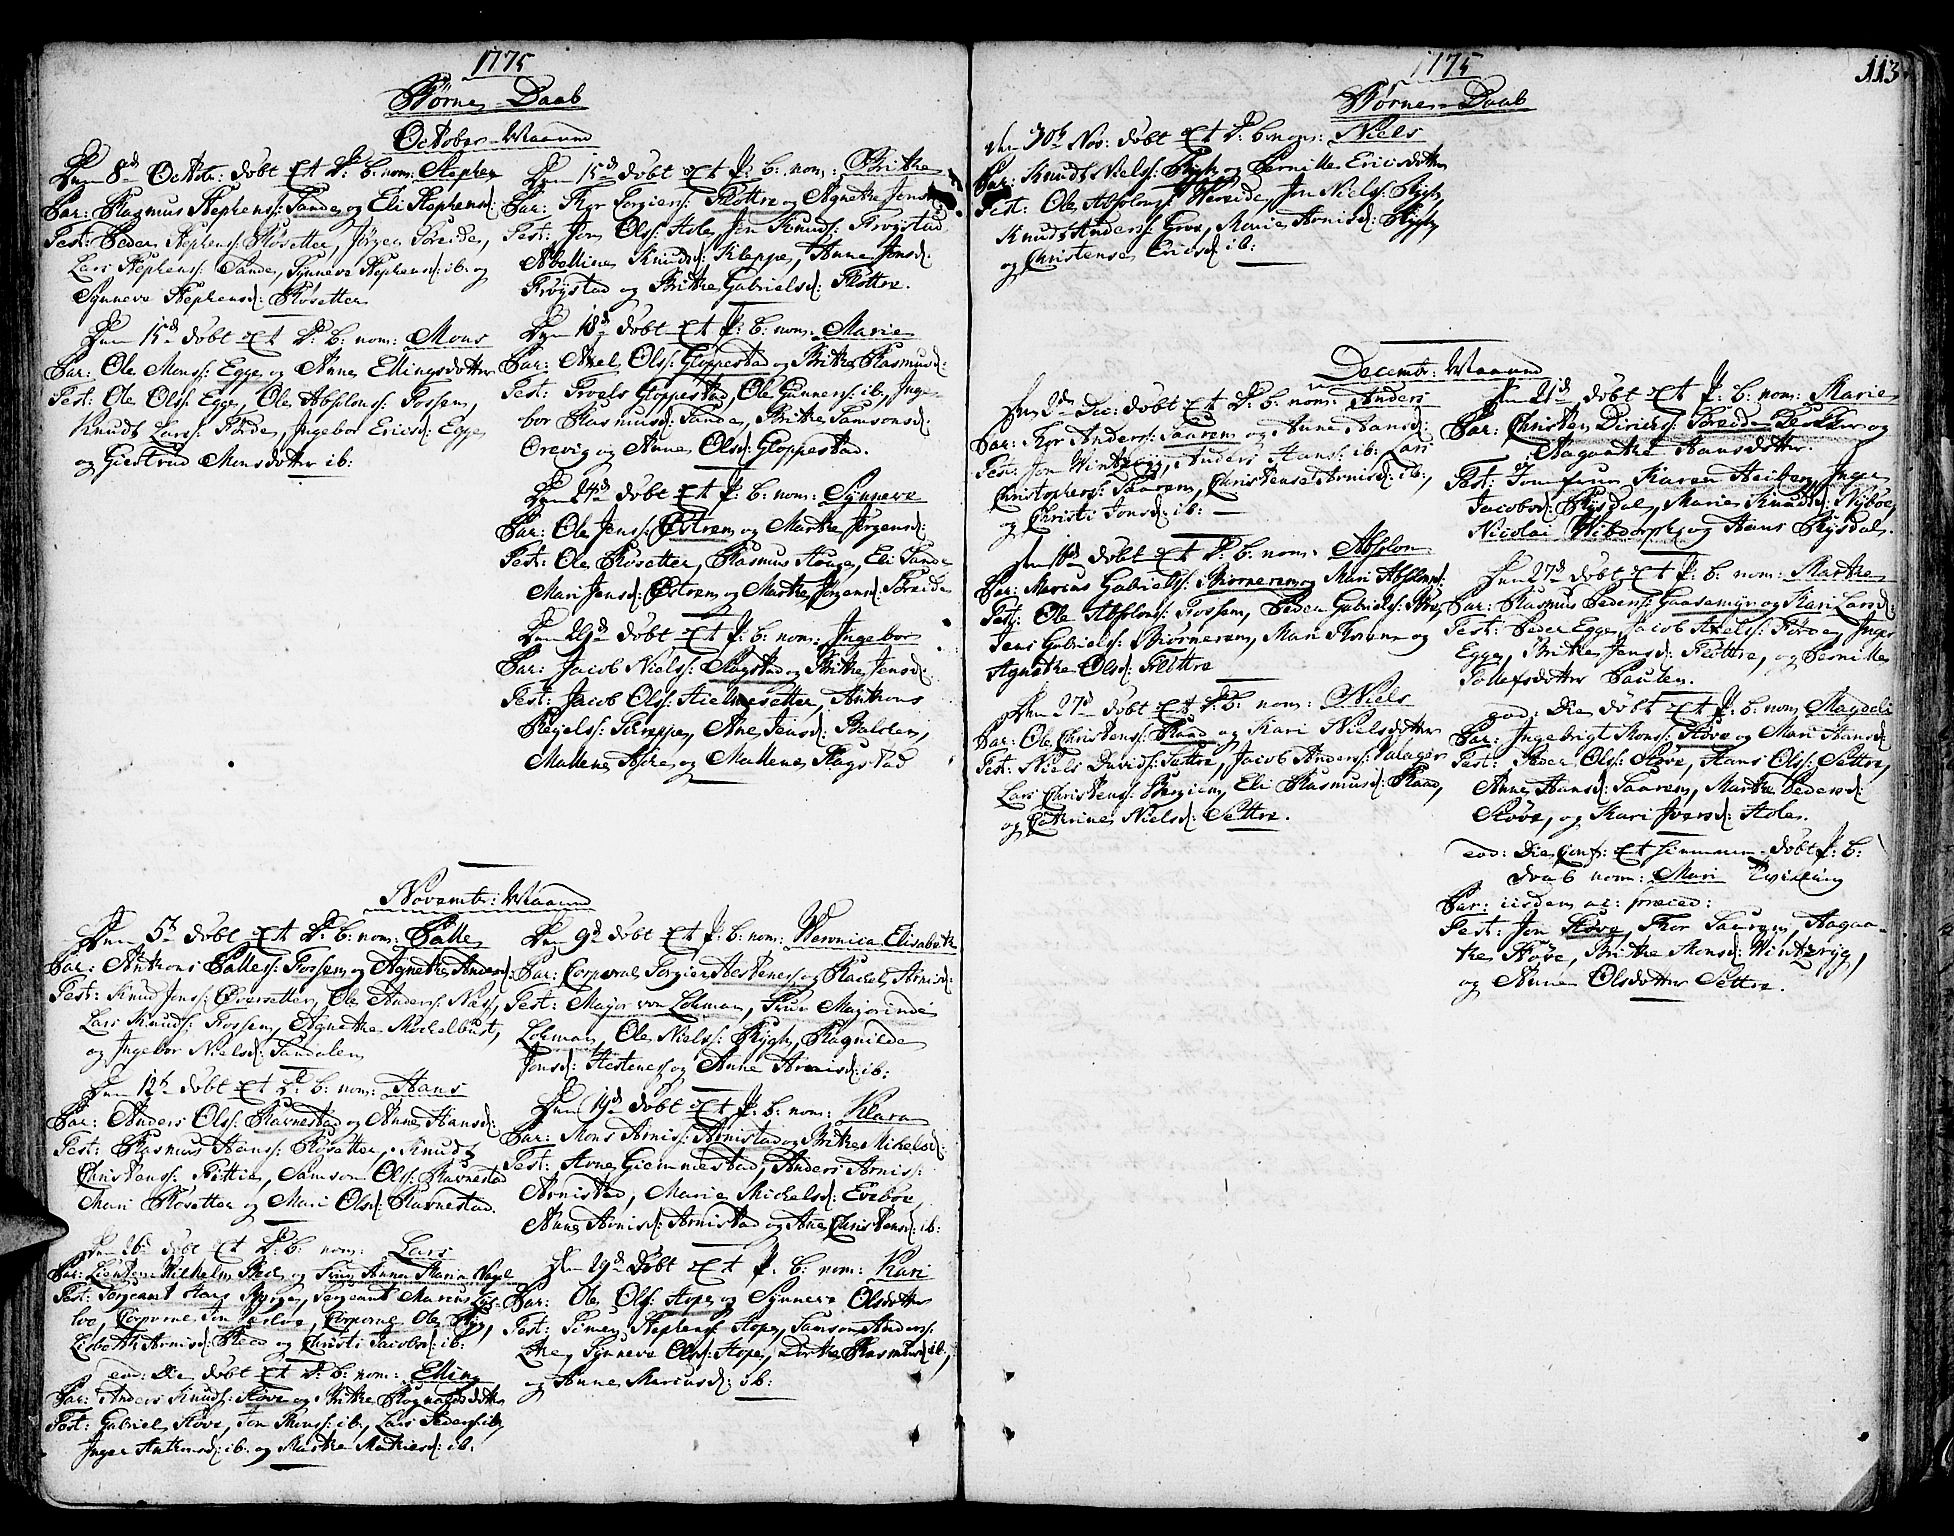 1775
Børne-Daab
October-Maaned
Den 8de Octobr: døbt et D: b: nom: Stephen
Par: Rasmus Stephens: Sande og Eli Stephensd:
Test: Peder Stephens: Røsetter, Jørgen Soreide,
Lars Stephens: Sande, Synneve Stephensd: ib: og
Synneve Stephensd: Røsetter
Den 15de døbt et D: b: nom: Mons
Par: Ole Mons: Egge og Anne Ellingsdotter
Test: Ole Ols: Egge, Ole Absolons: Fossem,
Knudt Lars: Førde, Ingebor Ericsd: Egge
og Giertrud Monsdotter ib:
Den 15de døbt et P: b: nom: Brithe
Par: Thor Torgiers: Fløttre og Agnethe Jensd:
Test: Jon Ols: Hole, Jon Knuds: Frøystad
Abelline Knudsd: Kleppe, Anne Jonsd:
Frøystad og Brithe Gabrielsd: Fløttre.
Den 18de døbt et P: b: nom: Marie
Par: Axel Ols: Gloppestad og Brithe Rasmusd:
Test: Troels Gloppestad, Ole Gunners: ib:, Inge-
bor Rasmusd: Sande, Brithe Samsonsd:
Orevig og Anne Olsd: Gloppestad.
Den 24de døbt et P: b: nom: Synneve
Par: Ole Jens: Østrem og Marthe Jørgensd:
Test: Ole Røsetter, Rasmus Hauge, Eli Sande
Mari Jensd: Østrem og Marthe Jørgensd: Soreide
Den 29de døbt et P: b: nom: Ingebor
Par: Jacob Niels: Ragstad og Brithe Jensd:
Test: Jacob Ols: Hielmesetter, Anthons
Ane Jensd: Balsten,
Mallene og Mallene Ragstad
Novembr: Maaned
Den 5te døbt et D: b: nom: Palle
Par: Anthoni Palles: Fossem og Agnethe Andersd:
Test: Knud Jens: Oversetter, Ole Anders: Næss,
Lars Knuds: Fossem, Agnethe Mechelbust,
og Ingebor Nielsd: Sandalen
Den 12te døbt et D: b: nom: Hans
Par: Anders Ols: Ravnestad og Anne Hansd:
Test: Rasmus Hans: Røsetter, Knud
Christens: Fittie, Samson Ols: Ravnestad
Mari Røsetter og Mari Olsd: Ravnestad.
Den 26de døbt et D: b: nom: Lars
Par: Lieuten: Wilhelm og Frue Anne Maria Nagel
Test: Sergeant Hans, Sergeant Marcus
Corporal Jon, Corporal Ole Ryg,
Lisbeth Arnisd: og Christi Jacobsd: ib:
eod: Die døbt et D: b: nom: Elling
Par: Anders Knuds: Støve og Brithe Rognaldsdotter
Test: Gabriel Støve, Jon Mons: ib:, Lars Peders: ib:
Inger Anthonsd: ib: og Marthe Mathiesd: ib:
Den 9de døbt et P: b: nom: Weronica Elisabeth
Par: Corporal Torgier Hestenes og Rachel Arnisd:
Test: Major von Lohman, Frue Majorinde
Lohman, Ole Niels: Rygh, Ragnilde
Jonsd: Hestenes og Anne Arnisd: ib:
Den 19de døbt et P: b: nom: Klara
Par: Mons Arnis: Arnistad og Brithe Michelsd:
Test: Arne Giemmestad, Anders Arnis:
Arnistad, Marie Michelsd: Evebøe,
Anne Arnisd: Arnistad og Ane Christensd: ib:
Den 29de døbt et P: b: nom: Kari
Par: Ole Ols: Hope og Synneve Olsdotter
Test: Simen Stephens: Hope, Samson Anders:
Synneve Olsd: Hope, Dorthe Rasmusd: ib:,
og Anne Mariusd: ib:
1775
113
Børne-Daab
den 30te Nov: døbt et D: b: nom: Niels
Par: Knudt Niels: Rygh og Pernille Ericsdotter
Test: Ole Absolons: Hereide, Jon Niels: Rygh,
Knudt Anders: Groe, Marie Arnisd: Rygh,
og Christense Ericsd: ib:
Decembr: Maaned
Den 3de Dec: døbt et D: b: nom: Anders
Par: Thor Anders: Saurem og Anne Hansd:
Test: Jon Wintzryg, Anders Hans: ib: Lars
Christophers: Saurem, Christense Arnisd: ib:,
og Christi Jonsd: ib:
Den 10de døbt et D: b: nom: Absolon
Par: Marcus Gabriels: Biornerem og Mari Absolonsd:
Test: Ole Absolons: Fossem, Peder Gabriels:
Jens Gabriels: Biornerem, Mari og
Agnethe Olsd: Fløttre
Den 27de døbt et D: b: nom: Niels
Par: Ole Christens: Raad og Kari Nielsdotter
Test: Niels Davids: Settre, Jacob Anders:
Lars Christens: Bergiem, Eli Rasmusd: Raad,
og Cathrine Nielsd: Settre.
Den 21de døbt et P: b: nom: Marie
Par: Christen Dirics: Soreide Dekker og
Aagaathe Hansdotter.
Test: Jomfrue Karen Heiberg, Inger
Jacobsd: Rysdal, Marie Knudsd: Nybøe,
Nicolai Wibdorph og Hans Rysdal.
Den 27de døbt et P: b: nom: Marthe
Par: Rasmus Peders: Gaasemyr og Kari Larsd:
Test: Peder Egge, Jacob Axels: Førde, Inger
Egge, Brithe Jensd: Fløttre, og Pernille
Tollefsdotter Paulen.
eod: Die døbt et P: b: nom: Magdeli
Par: Ingebrigt Mons: Støve og Mari Hansd:
Test: Peder Ols: Støve, Hans Ols: Settre,
Anne Hansd: Saurem, Marthe Pedersd:
Støve, og Kari Iversd: Hole.
eod: Die Conf: et hiemme døbt P: b:
daab nom: Mari Tvilling
Par: iisdem ac præced:
Test: Jon Støve, Thor Saurem, Aagaa-
the Støve, Brithe Monsd: Wintzryg,
og Anne Olsdotter Settre.